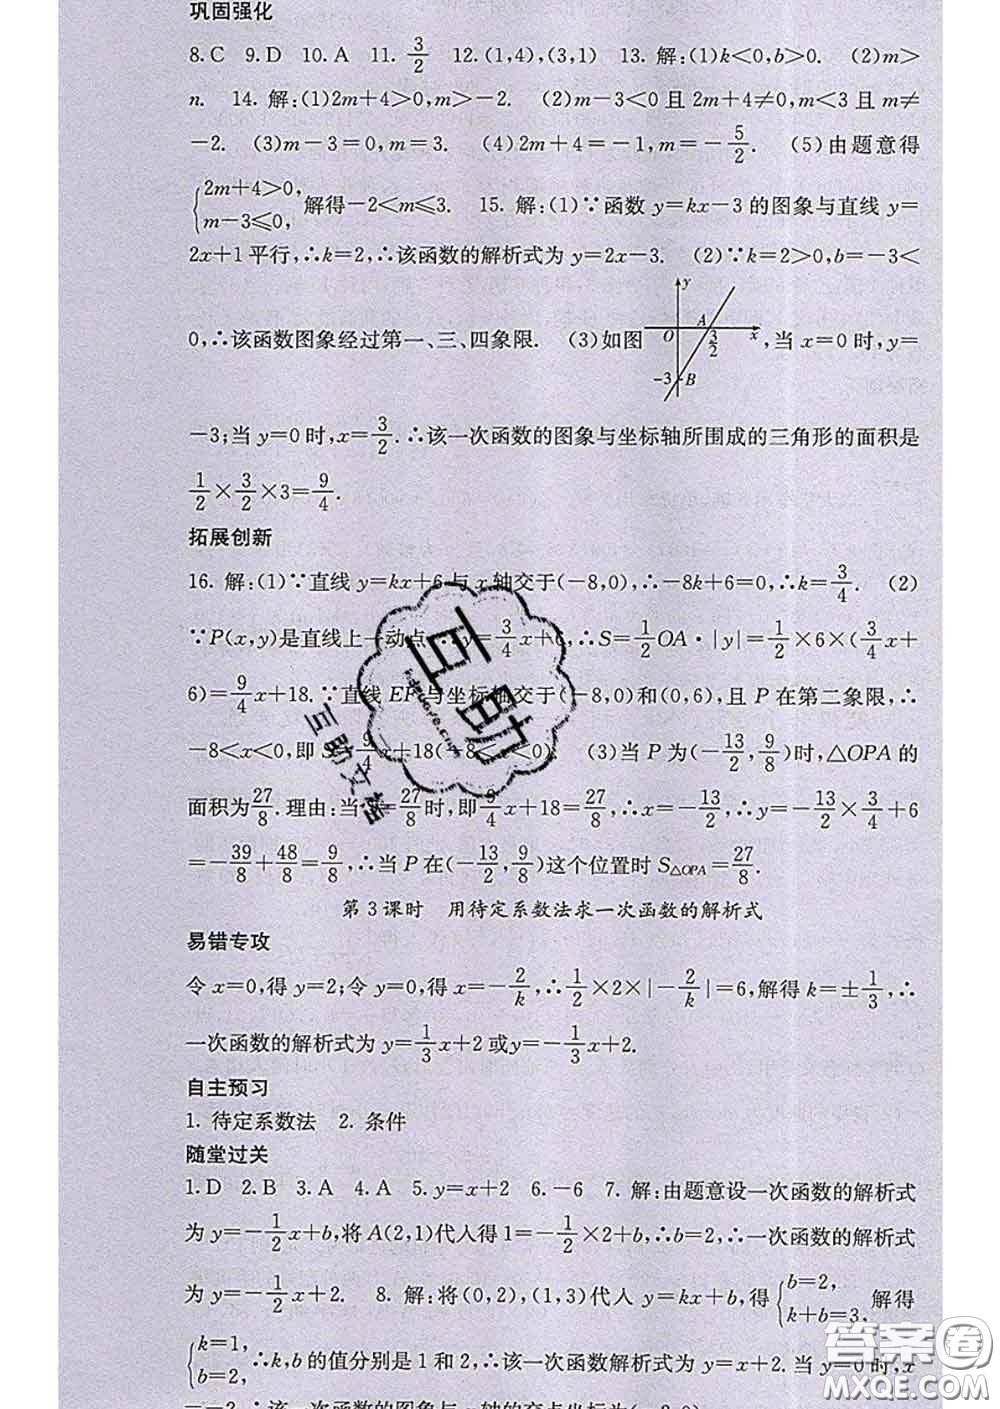 巩固强化
8. C 9. D 10. A 11. 3/2 12. (1,4),(3,1) 13. 解:(1)k<0,b>0. (2)m>
n. 14. 解:(1)2m+4>0,m>-2. (2)m-3<0且2m+4≠0,m<3且m≠
-2. (3)m-3=0,m=3. (4)2m+4=-1,m=-5/2. (5)由题意得
{2m+4>0, m-3≤0, 解得-2<m≤3. 15. 解:(1)∵函数y=kx-3的图象与直线y=
2x+1平行,∴k=2,∴该函数的解析式为y=2x-3. (2)∵k=2>0,b=-3<
0,∴该函数图象经过第一、三、四象限. (3)如图 y A O 3/2 x -3 B ,当x=0时,y=
-3;当y=0时,x=3/2.∴该一次函数的图象与坐标轴所围成的三角形的面积是
1/2×3/2×3=9/4.
拓展创新
16. 解:(1)∵直线y=kx+6与x轴交于(-8,0),∴-8k+6=0,∴k=3/4. (2)
∵P(x,y)是直线上一动点,∴y=3/4x+6,∴S=1/2OA·|y|=1/2×6×(3/4x+
6)=9/4x+18.∵直线EF与坐标轴交于(-8,0)和(0,6),且P在第二象限,∴
-8<x<0,即S=9/4x+18(-8<x<0). (3)当P为(-13/2,9/8)时,△OPA的
面积为27/8.理由:当S=27/8时,即9/4x+18=27/8,∴x=-13/2,∴y=-13/2×3/4+6
=-39/8+48/8=9/8,∴当P在(-13/2,9/8)这个位置时S△OPA=27/8.
第3课时 用待定系数法求一次函数的解析式
易错专攻
令x=0,得y=2;令y=0,得x=-2/k,∴1/2×2×|-2/k|=6,解得k=±1/3,∴
一次函数的解析式为y=1/3x+2或y=-1/3x+2.
自主预习
1. 待定系数法 2. 条件
随堂过关
1. D 2. B 3. A 4. A 5. y=x+2 6. -6 7. 解:由题意设一次函数的解析式
为y=-1/2x+b,将A(2,1)代人得1=-1/2×2+b,∴b=2,∴一次函数的解析式
为y=-1/2x+2. 8. 解:将(0,2),(1,3)代人y=kx+b,得{b=2, k+b=3, 解得
{k=1, b=2, ∴k,b的值分别是1和2,∴该一次函数解析式为y=x+2.当y=0时,x
=-2,∴该一次函数的图象与x轴的交点坐标为(-2,0).
互助
互助文档
答案圈
MXQE.COM